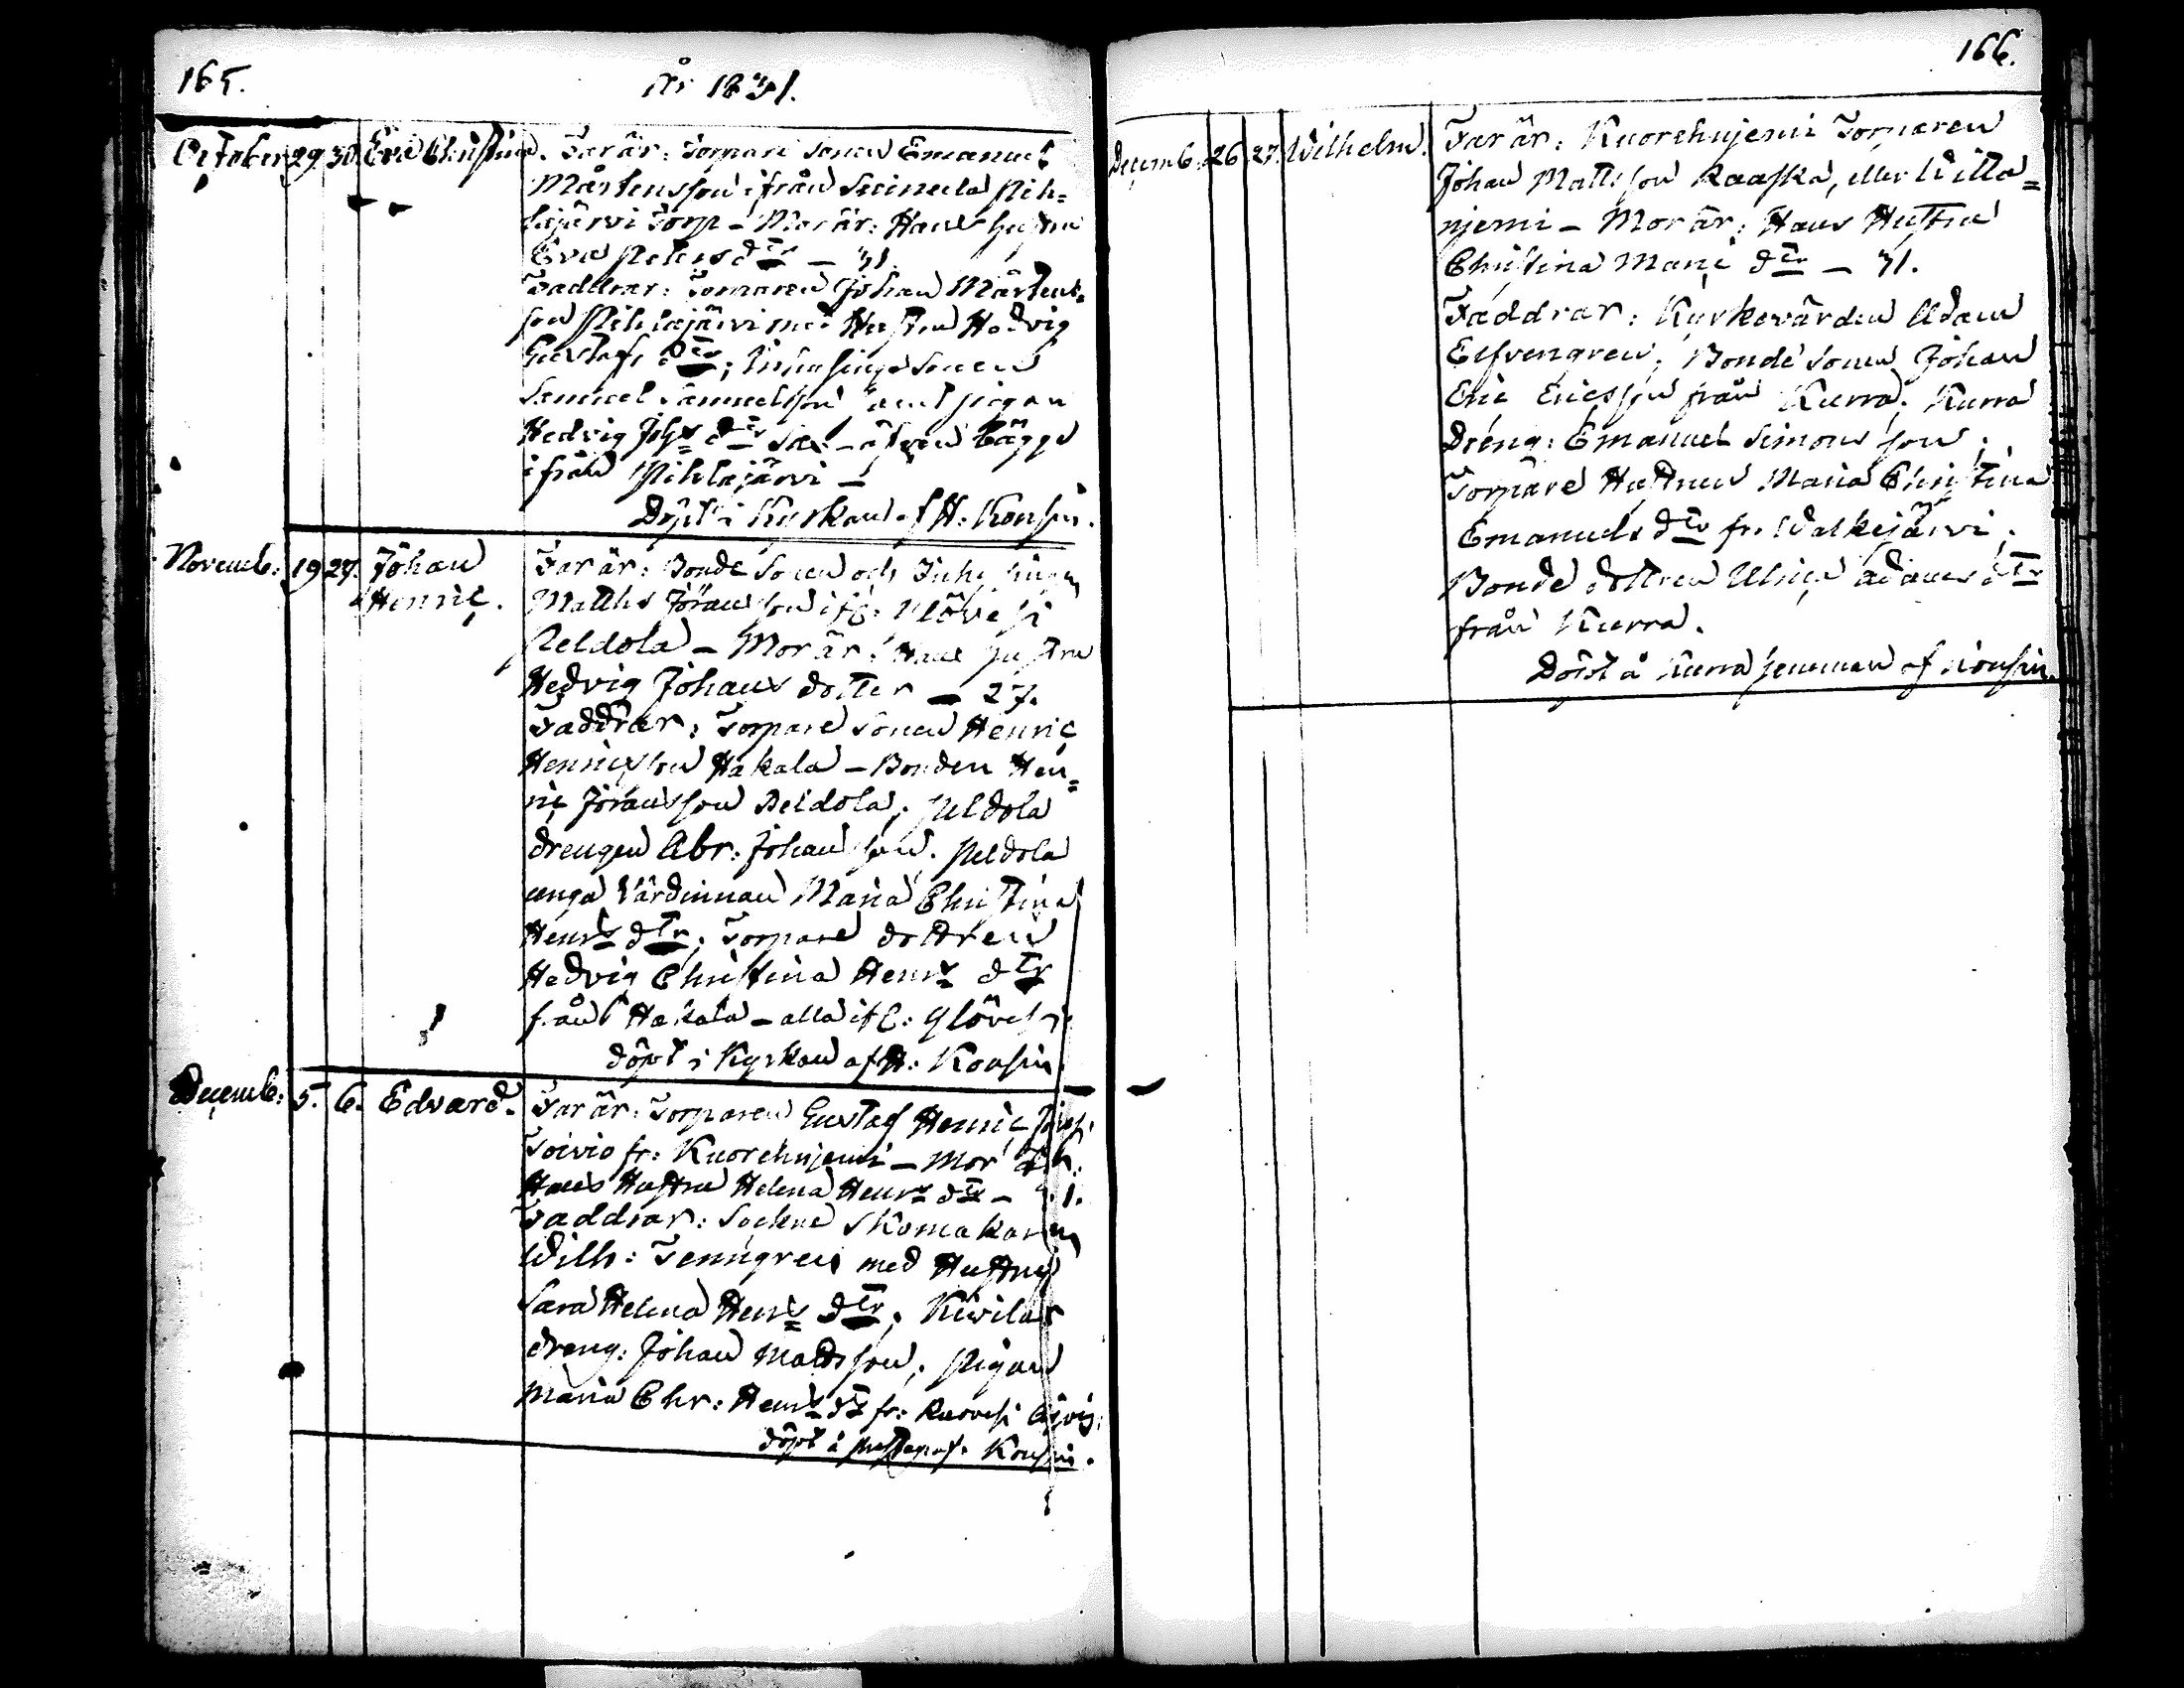 165.
År 1831.
October 29. 30. Eva Christina. Far är: Torpare sonen Emanuel
Mårtensson ifrån Seinula Pih=
lajärvi Torp - Mor är: Hans Hustru
Eva Petersdtr - 31.
Faddrar: Torparen Johan Mårtens=
son Pihlajärvi med Hustru Hedvig
Gustafs dtr; Inhysinge sonen
Samuel Samuelsson samt pigan
Hedvig Johs dtr - bägge
ifrån Pihlajärvi -
Döpt i Kyrkan af H: Konsin.
Novemb: 19 27. Johan
Henric.
Far är: Bonde Sonen och Inhysingen
Matths Jöransson if: Ylövesi
Peldola - Mor är: Hans Hustru
Hedvig Johans dotter - 27.
Faddrar: Torpare sonen Henric
Henricsson Hakala - Bonden Hen=
ric Jöransson Peldola; Peldola
drengen Abr: Johansson. Peldola
unga Värdinnan Maria Christina
Henrs dtr; Torpare dottren
Hedvig Christina Henrs dtr
från Hakala - alla if: Ylövesi.
döpt i Kyrkan af H: Konsin
Decemb: 5. 6. Edvard.
Far är: Torparen Gustaf Henric
Toivio fr: Kuorehnjemi - Mor är:
Hans Hustru Helena Henrs dtr - 31.
Faddrar: Sockne Skomakaren
Wilh: Tenngren med Hustru
Sara Helena Henrs dtr; Kivilax
dreng: Johan Mattsson; Pigan
Maria Chr: Henrs dr fr: Kuovesi
döpt å Konsin.
166.
Decemb: 26. 27. Wilhelm.
Far är: Kuorehnjemi Torparen
Johan Mattsson Kaaska, eller Litta=
njemi - Mor är: Hans Hustru
Christina Marie dtr - 31.
Faddrar: Kyrkovärden Adam
Elfvengren; Bonde sonen Johan
Eric Ericsson från Kurra; Kurra
Dreng: Emanuel Simonsson;
Torpare Hustrun Maria Christina
Emanuels dtr fr: Walkejärvi;
Bonde dottren Ulrica Adams dtr
från Kurra.
Döpt å Kurra hemman af Konsin.